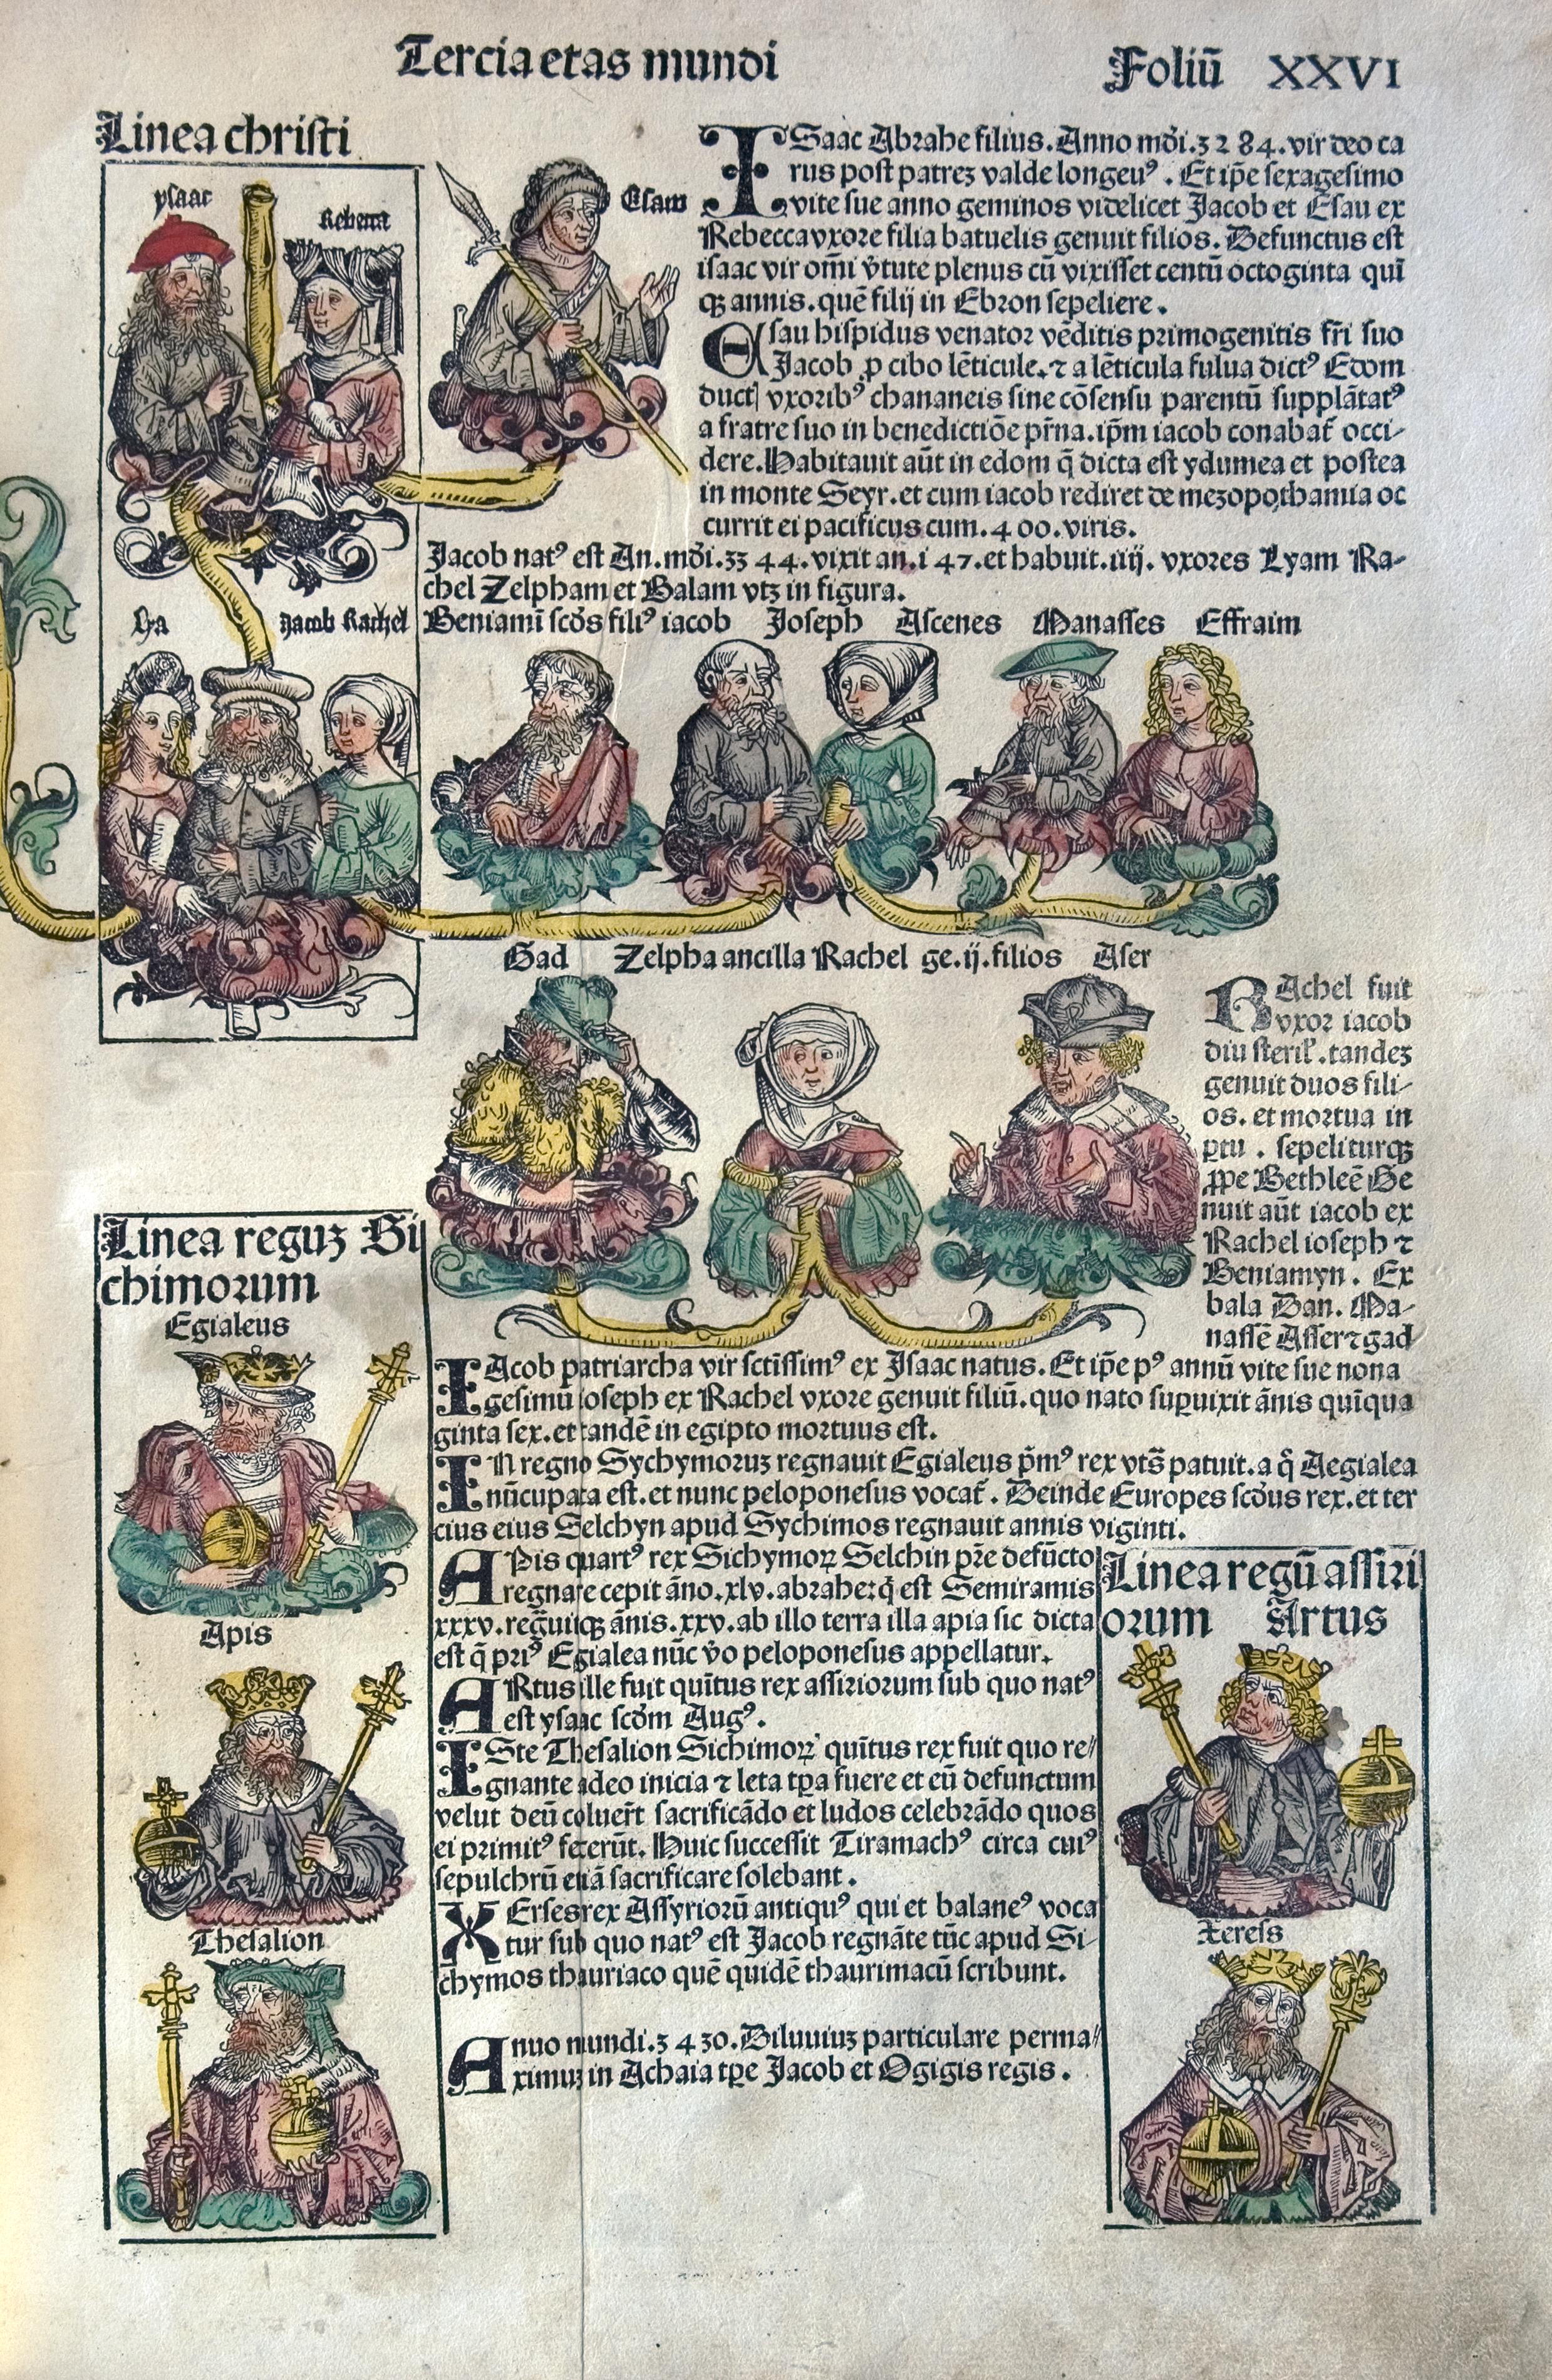 Tercia etas mundi
Foliū XXVI
Linea christi
ysaac
Rebecca
Esaw
ISaac Abrahe filius. Anno mđi. 3284. vir deo ca
rus post patreʒ valde longeuꝰ. Et ip̄e sexagesimo
vite sue anno geminos videlicet Jacob et Esau ex
Rebecca vxore filia batuelis genuit filios. Defunctus est
isaac vir om̄i v̄tute plenus cū vixisset centū octoginta qui
qꝫ annis. quē filij in Ebron sepeliere.
Esau hispidus venator vēditis primogenitis fr̄i suo
Jacob ꝓ cibo lēticule. ⁊ a lēticula fulua dictꝰ Edom
duct vxoribꝰ chananeis sine cōsensu parentū supplātatꝰ
a fratre suo in benedictiōe pr̄na. ip̄m iacob conabat̄ occi-
dere. Habitauit aūt in edom q̄ dicta est ydumea et postea
in monte Seyr. et cum iacob rediret de mezopothamia oc
currit ei pacificus cum. 400. viris.
Jacob natꝰ est An. mđi. 3344. vixit an. 147. et habuit. iiij. vxores Lyam Ra-
chel Zelpham et Balam vtꝫ in figura.
Lya
Jacob Rachel
Beniamī scđs filiꝰ iacob Joseph Ascenes Manasses Effraim
Gad Zelpha ancilla Rachel ge. ij. filios Aser
RAchel fuit
vxor iacob
diu sterił. tandeʒ
genuit duos fili-
os. et mortua in
ꝑtu. sepeliturqꝫ
ꝓpe Bethleē Ge
nuit aūt iacob ex
Rachel ioseph ⁊
Beniamyn. Ex
bala Dan. Ma-
nassē Asser ⁊ gad
Linea reguʒ Si
chimorum
Egialeus
IAcob patriarcha vir sctissimꝰ ex Isaac natus. Et ip̄e pꝰ annū vite sue nona
gesimū ioseph ex Rachel vxore genuit filiū. quo nato suꝑuixit ānis quīqua
ginta sex. et tandē in egipto mortuus est.
IN regno Sychymoruʒ regnauit Egialeus p̄mꝰ rex vts̄ patuit. a q̊ Aegialea
nūcupata est. et nunc peloponesus vocat̄. Deinde Europes scđus rex. et ter
cius eius Selchyn apud Sychimos regnauit annis viginti.
Apis
APis quartꝰ rex Sichymoꝝ Selchin pr̄e defūcto
regnare cepit āno. xlv. abrahe: q̄ est Semiramis
xxxv. regūitqꝫ ānis. xxv. ab illo terra illa apia sic dicta
est q̄ priꝰ Egialea nūc v̊o peloponesus appellatur.
ARtus ille fuit quītus rex assiriorum sub quo natꝰ
est ysaac scđm Augꝰ.
ISte Thesalion Sichimoꝝ quītus rex fuit quo re-
gnante adeo inicia ⁊ leta tꝑa fuere et eū defunctum
velut deū coluer̄t sacrificādo et ludos celebrādo quos
ei primitꝰ fecerūt. Huic successit Tiramachꝰ circa cuiꝰ
sepulchrū etiā sacrificare solebant.
Thesalion
XErses rex Assyriorū antiquꝰ qui et balaneꝰ voca
tur sub quo natꝰ est Jacob regnāte tūc apud Si-
chymos thauriaco quē quidē thaurimacū scribunt.
Anno mundi. 3430. Diluuiuʒ particulare perma-
ximuʒ in Achaia tꝑe Jacob et Ogigis regis.
Linea regū assiri
orum Artus
Xerses